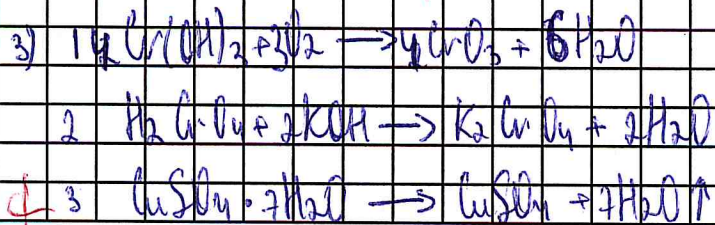 3) 1 4Cr(OH)3 + 3O2 → 4CrO3 + 6H2O
2 H2CrO4 + 2KOH → K2CrO4 + 2H2O
3 CuSO4 · 7H2O → CuSO4 + 7H2O↑